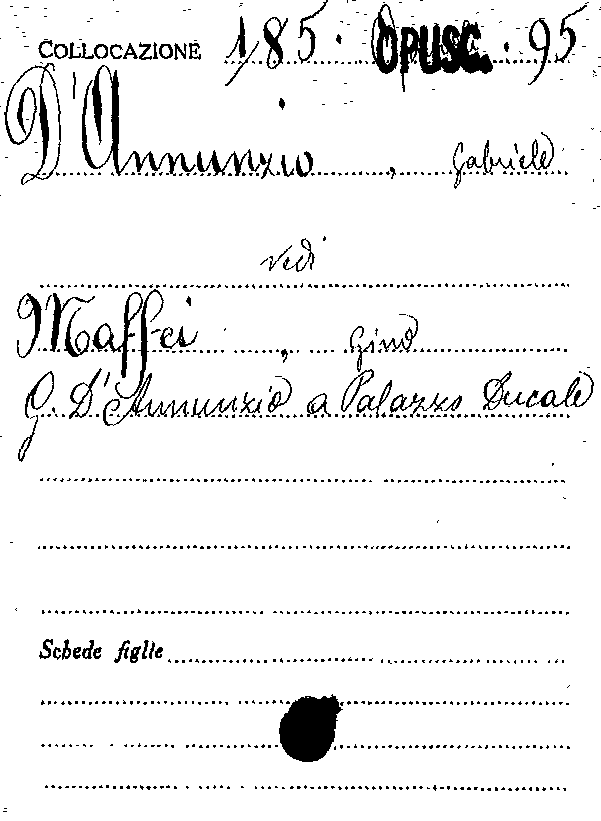 COLLOCAZIONE 185. OPUSC. 95
D'Annunzio, Gabriele
vedi
Maffei, Gino
G. D'Annunzio a Palazzo Ducale
Schede figlie